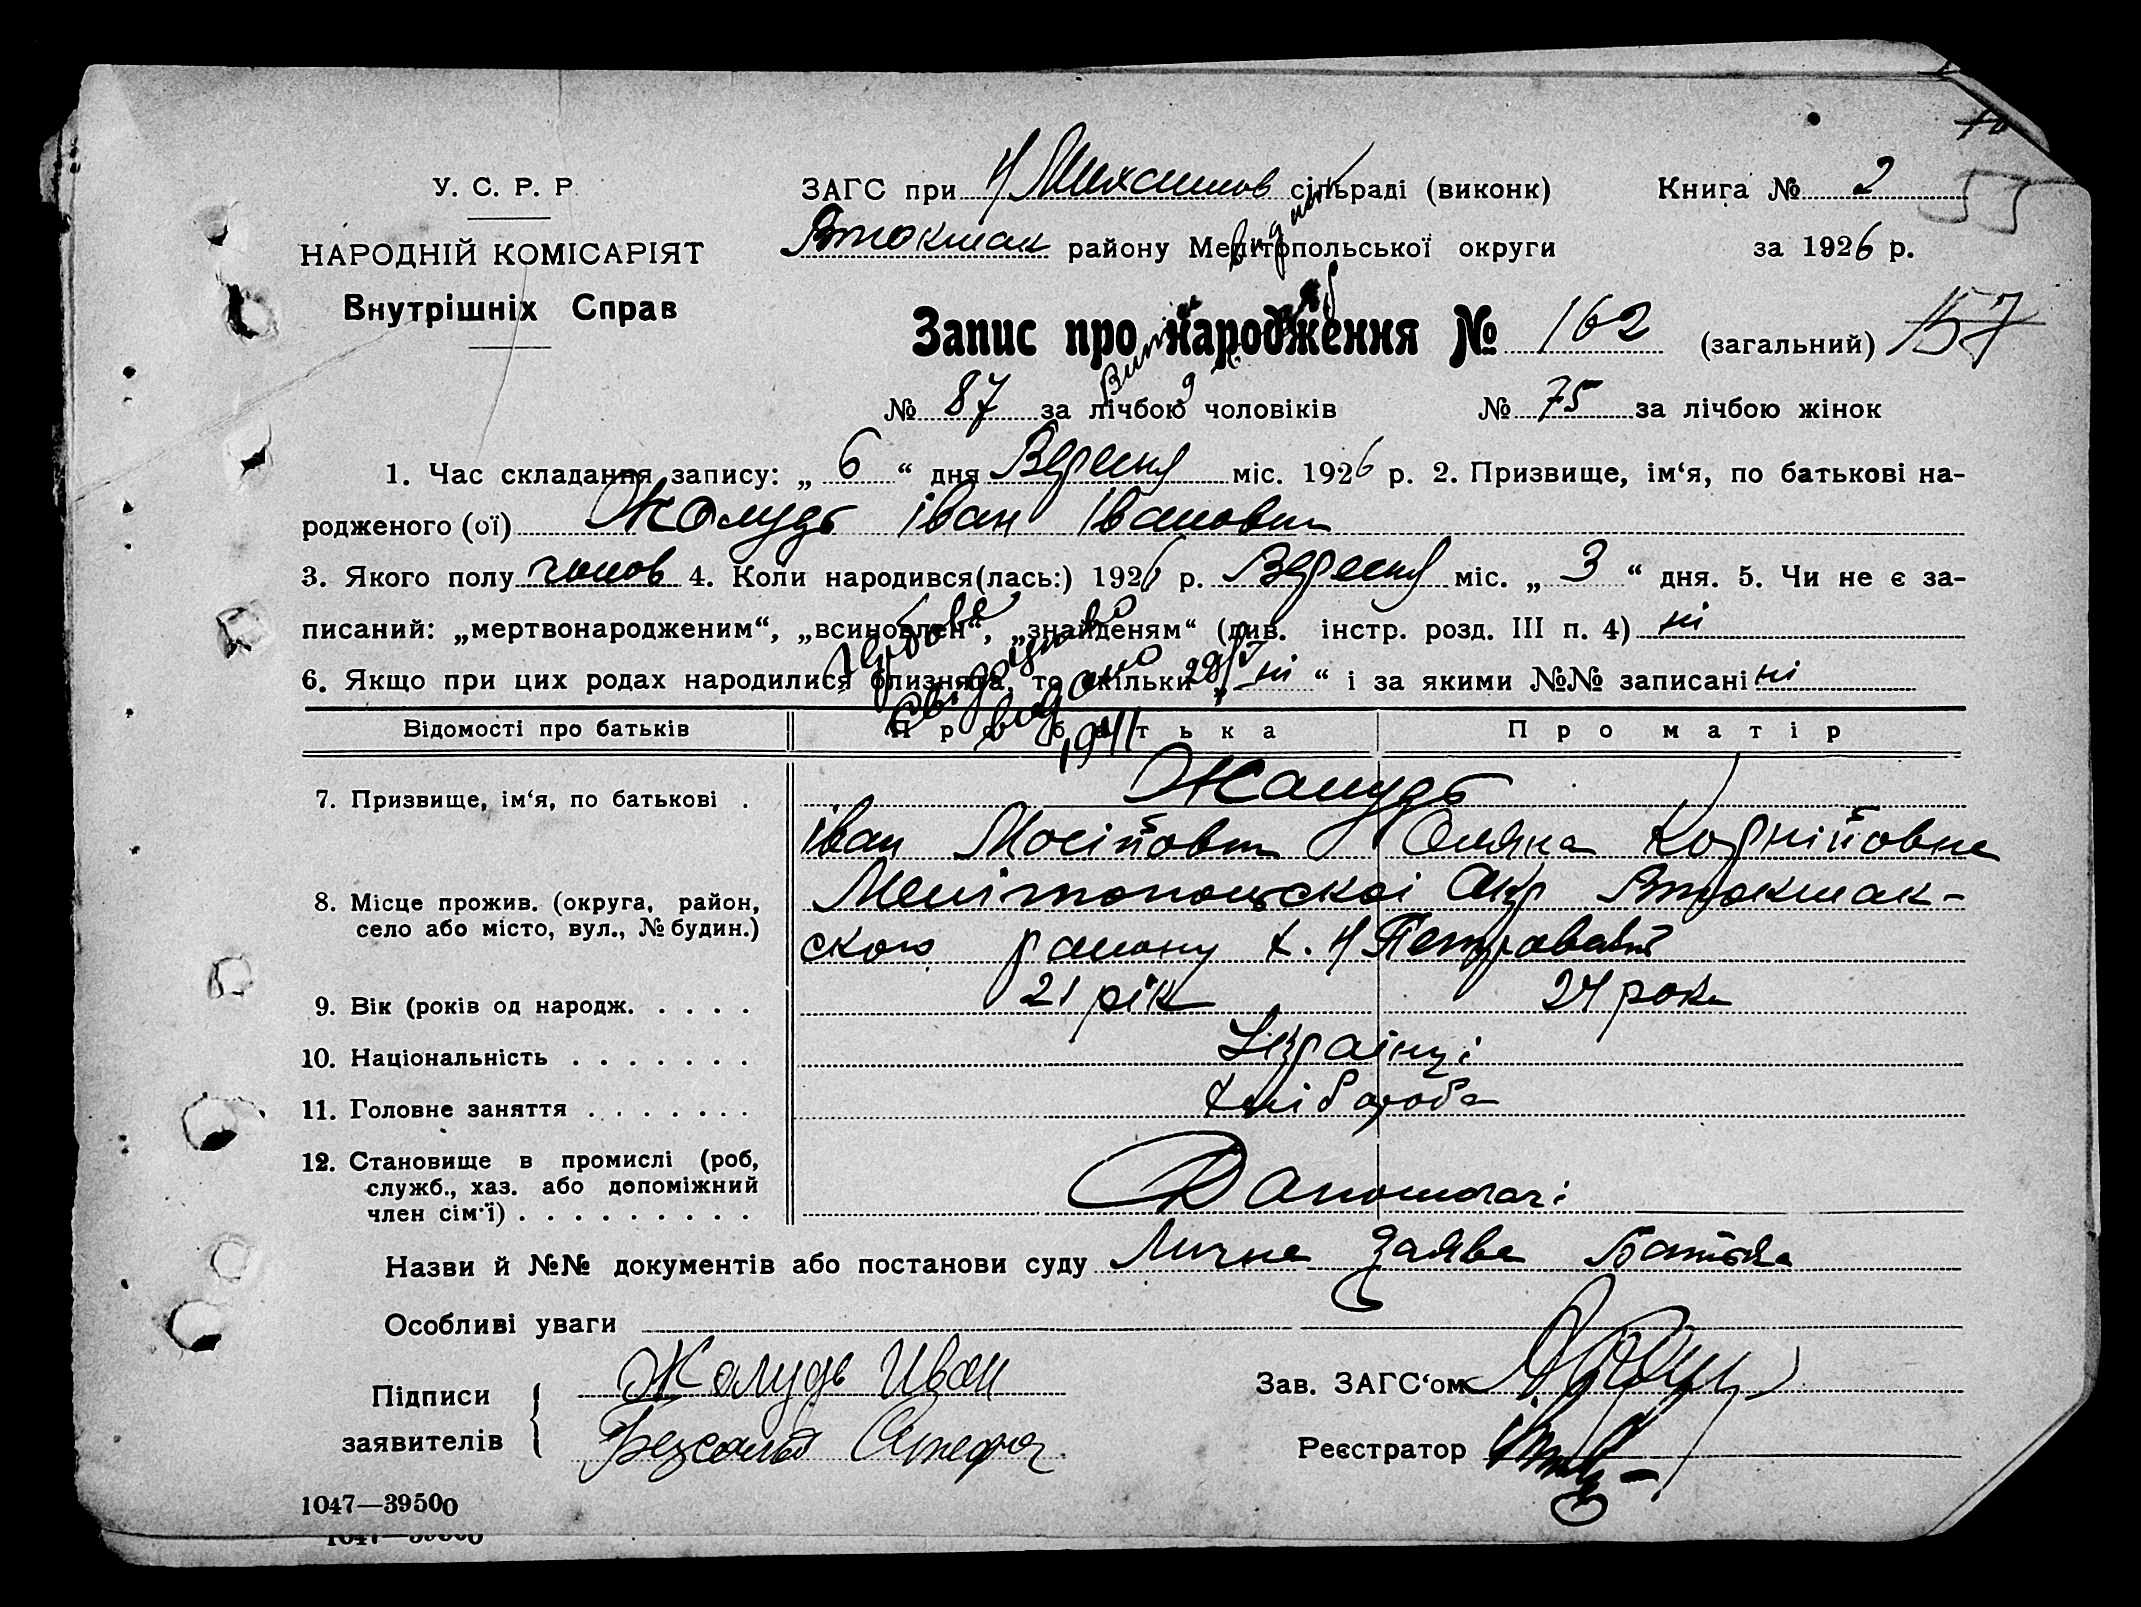 У. С. Р. Р.
НАРОДНІЙ КОМІСАРІЯТ
Внутрішніх Справ
ЗАГС при Н Михайлов сільраді (виконк)
Втокмак району Мелітопольської округи
Книга № 2
за 1926 р.
55
Запис про народження № 162 (загальний) 157
№ 87 за лічбою чоловіків № 75 за лічбою жінок
1. Час складання запису: „ 6 “ дня Вересня міс. 1926 р. 2. Призвище, ім‘я, по батькові на-
родженого (ої) Жолудь Іван Іванович
3. Якого полу чолов 4. Коли народився(лась:) 1926 р. Вересня міс. „ 3 “ дня. 5. Чи не є за-
писаний: „мертвонародженим“, „всиновлен“, „знайденям“ (див. інстр. розд. III п. 4) ні
6. Якщо при цих родах народилися близнята, то скільки „ ні “ і за якими №№ записані ні
свідоцтво
видано 29/
1941
Відомості про батьків Про батька Про матір
7. Призвище, ім‘я, по батькові . Жолудь
Іван Мосійович Оляна Корнійовна
8. Місце прожив. (округа, район,
село або місто, вул., № будин.)
Мелітопольської Окр Втокмак-
ского району х. Н Петровський
9. Вік (років од народж. . . . . 21 рік 24 роки
10. Національність . . . . . . . Українці
11. Головне заняття . . . . . . . Хлібороба
12. Становище в промислі (роб,
служб., хаз. або допоміжний
член сім‘ї) . . . . . . . . . Допомогачі
Назви й №№ документів або постанови суду Лична заява Батька
Особливі уваги
Підписи
заявителів
Жолудь Иван
Зав. ЗАГС‘ом
Реєстратор
1047—39500